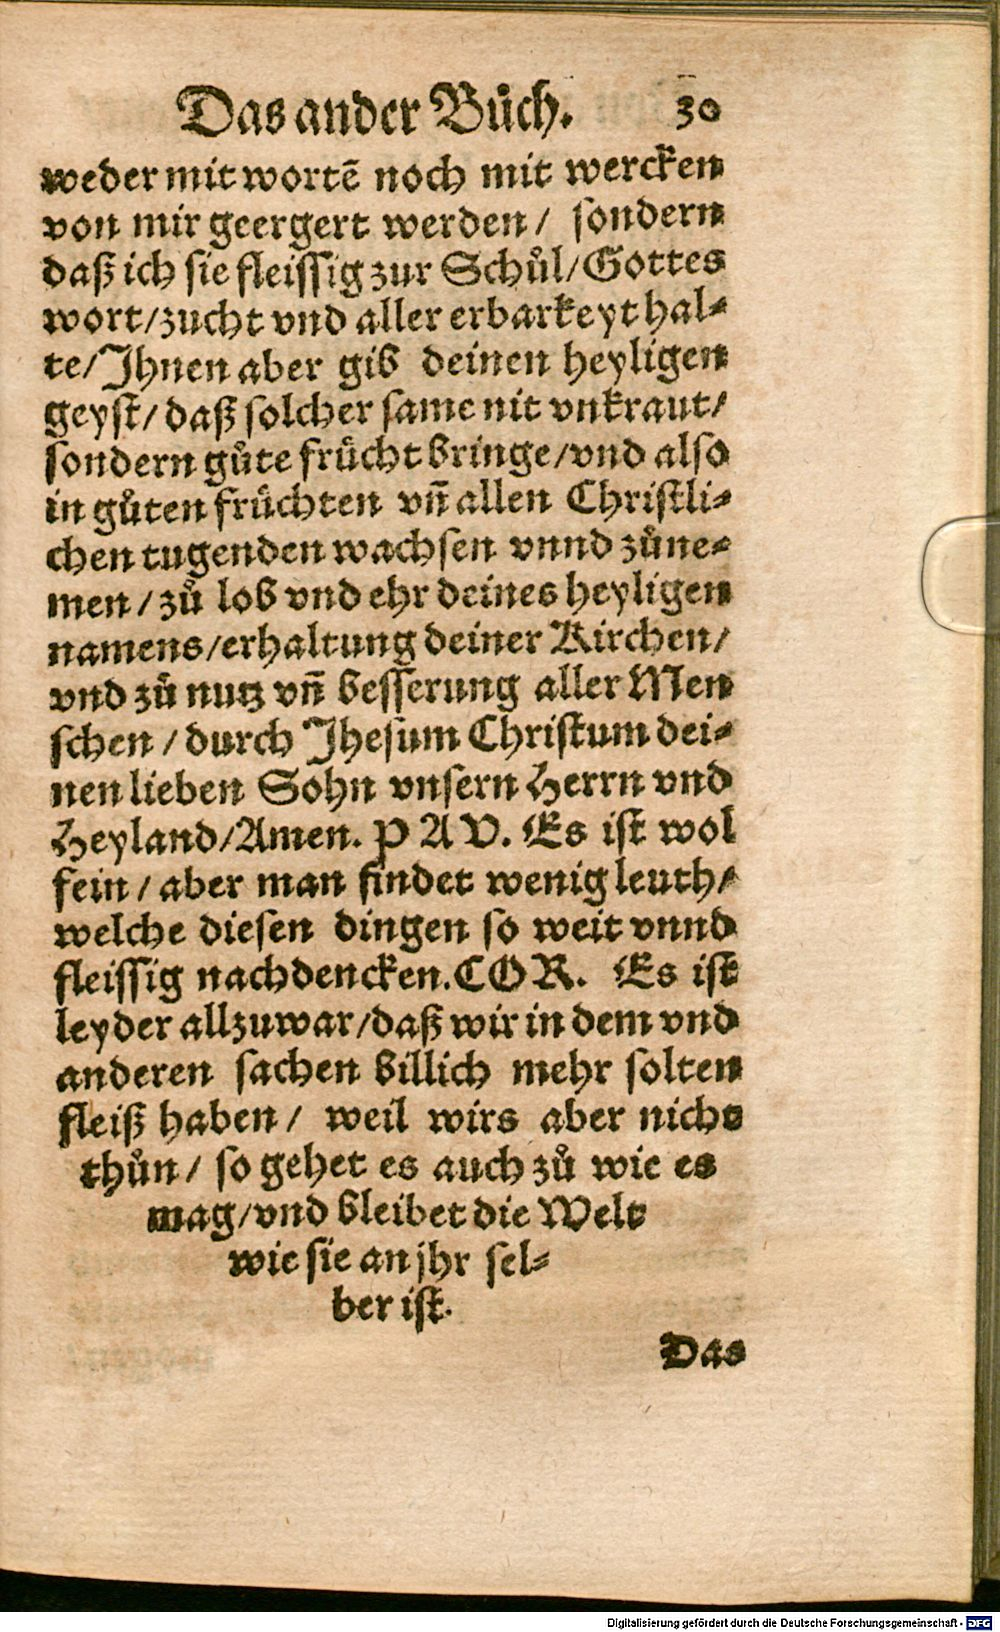 Das ander Bůch. 30
weder mit wortē noch mit wercken
von mir geergert werden/ sondern
daß ich sie fleissig zur Schůl/Gottes
wort/zucht vnd aller erbarkeyt hal-
te/Jhnen aber gib deinen heyligen
geyst/daß solcher same nit vnkraut/
sondern gůte frücht bringe/vnd also
in gůten früchten vñ allen Christli-
chen tugenden wachsen vnnd zůne-
men/zů lob vnd ehr deines heyligen
namens/erhaltung deiner Kirchen/
vnd zů nutz vñ besserung aller Men
schen/durch Jhesum Christum dei-
nen lieben Sohn vnsern Herrn vnd
Heyland/Amen. PAV. Es ist wol
fein/aber man findet wenig leuth/
welche diesen dingen so weit vnnd
fleissig nachdencken. COR. Es ist
leyder allzuwar/daß wir in dem vnd
anderen sachen billich mehr solten
fleiß haben/ weil wirs aber nicht
thůn/ so gehet es auch zů wie es
mag/vnd bleibet die Welt
wie sie an jhr sel-
ber ist.
Das
Digitalisierung gefördert durch die Deutsche Forschungsgemeinschaft - DFG